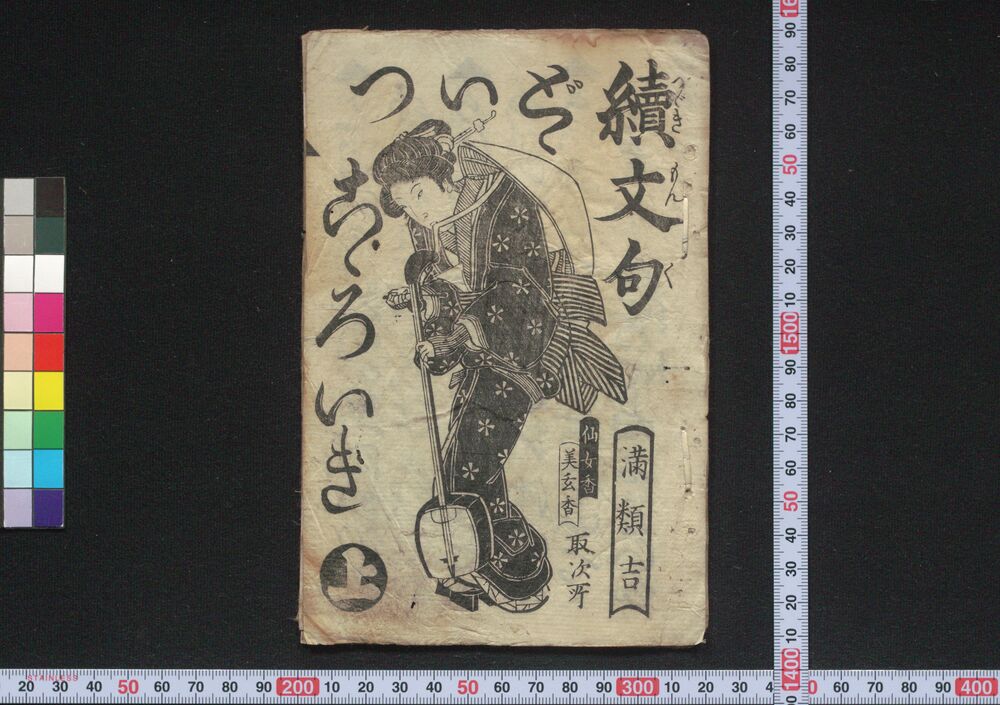 續文句
つゞきもんく
どゞいつ
こゝろいき
上
満類吉
仙女香
美玄香
取次所
90 80 70 60 50 40 30 20 10 1500 90 80 70 60 50 40 30 20 10 1400
STAINLESS
20 30 40 50 60 70 80 90 200 10 20 30 40 50 60 70 80 90 300 10 20 30 60 70 80 90 400